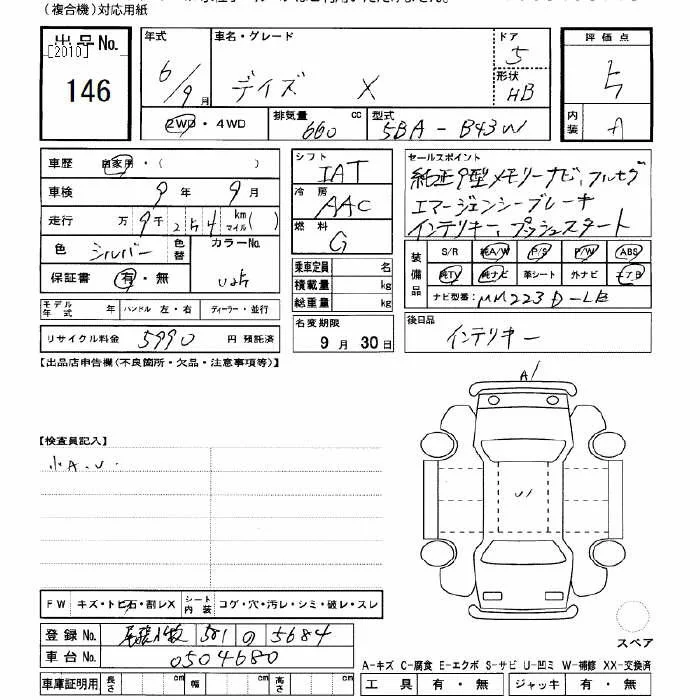 （複合機）対応用紙
出品No.
[2010]
146
年式
6/9月
車名・グレード
デイズ X
ドア
5
形状
HB
評価点
内装
A
2WD・4WD
排気量 660 cc
型式 5BA-B43W
車歴 自家用・( )
車検 9年 9月
走行 万9千254 km マイル( )
色 シルバー
色替
カラーNo.
保証書 有・無
モデル年式 年 ハンドル 左・右 ディーラー・並行
リサイクル料金 5990 円 預託済
シフト
IAT
冷房
AAC
燃料
G
乗車定員 名
積載量 kg
総重量 kg
名変期限
9月30日
セールスポイント
純正9型メモリーナビ、フルセグ
エマージェンシーブレーキ
インテリキー、プッシュスタート
装備品
S/R 純A/W P/S P/W ABS
純TV 純ナビ 革シート 外ナビ エアB
ナビ型番: MM223D-LE
後日品
インテリキー
【出品店申告欄(不良箇所・欠品・注意事項等)】
A1
【検査員記入】
小A.U.
U1
FW キズ・トビ石・割レX シート内装 コゲ・穴・汚レ・シミ・破レ・スレ
登録No. 尾張小牧 581 の 5684
車台No. 0504680
車庫証明用 長さ cm 幅 cm 高さ cm
スペア
A-キズ C-腐食 E-エクボ S-サビ U-凹ミ W-補修 XX-交換済
工具 有・無 ジャッキ 有・無